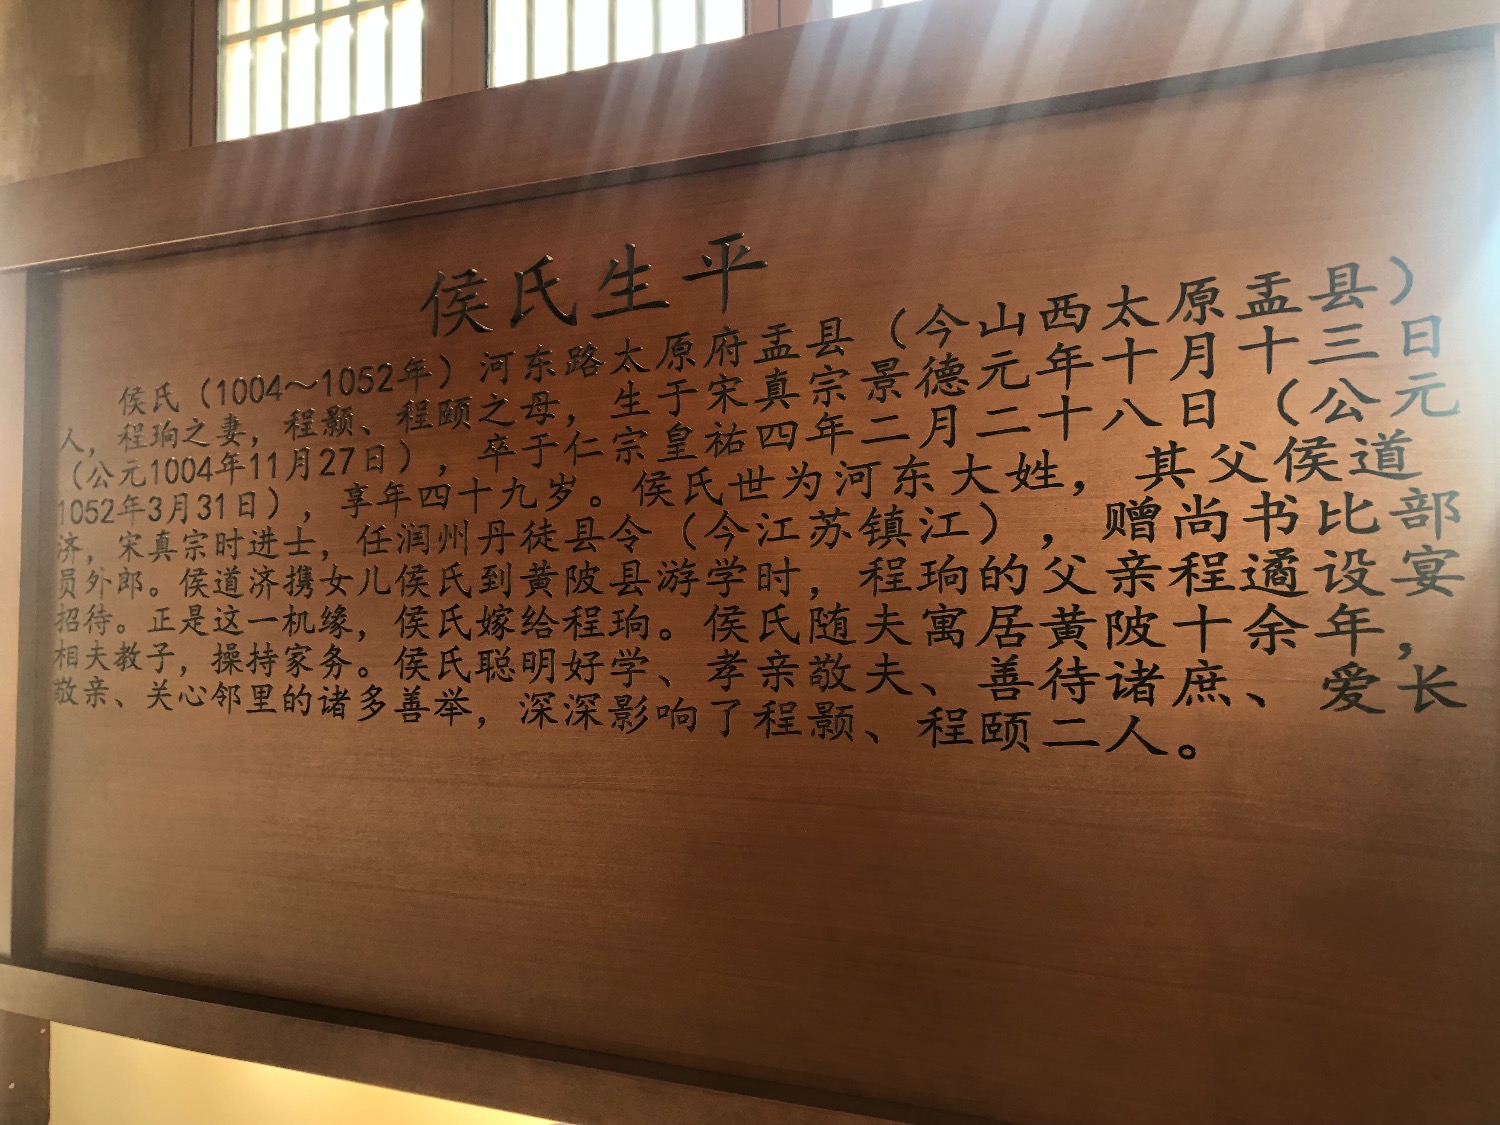 侯氏生平
侯氏（1004～1052年）河东路太原府盂县（今山西太原盂县）
人，程珦之妻，程颢、程颐之母，生于宋真宗景德元年十月十三日
（公元1004年11月27日），卒于仁宗皇祐四年二月二十八日（公元
1052年3月31日），享年四十九岁。侯氏世为河东大姓，其父侯道
济，宋真宗时进士，任润州丹徒县令（今江苏镇江），赠尚书比部
员外郎。侯道济携女儿侯氏到黄陂县游学时，程珦的父亲程遹设宴
招待。正是这一机缘，侯氏嫁给程珦。侯氏随夫寓居黄陂十余年，
相夫教子，操持家务。侯氏聪明好学、孝亲敬夫、善待诸庶、爱长
敬亲、关心邻里的诸多善举，深深影响了程颢、程颐二人。